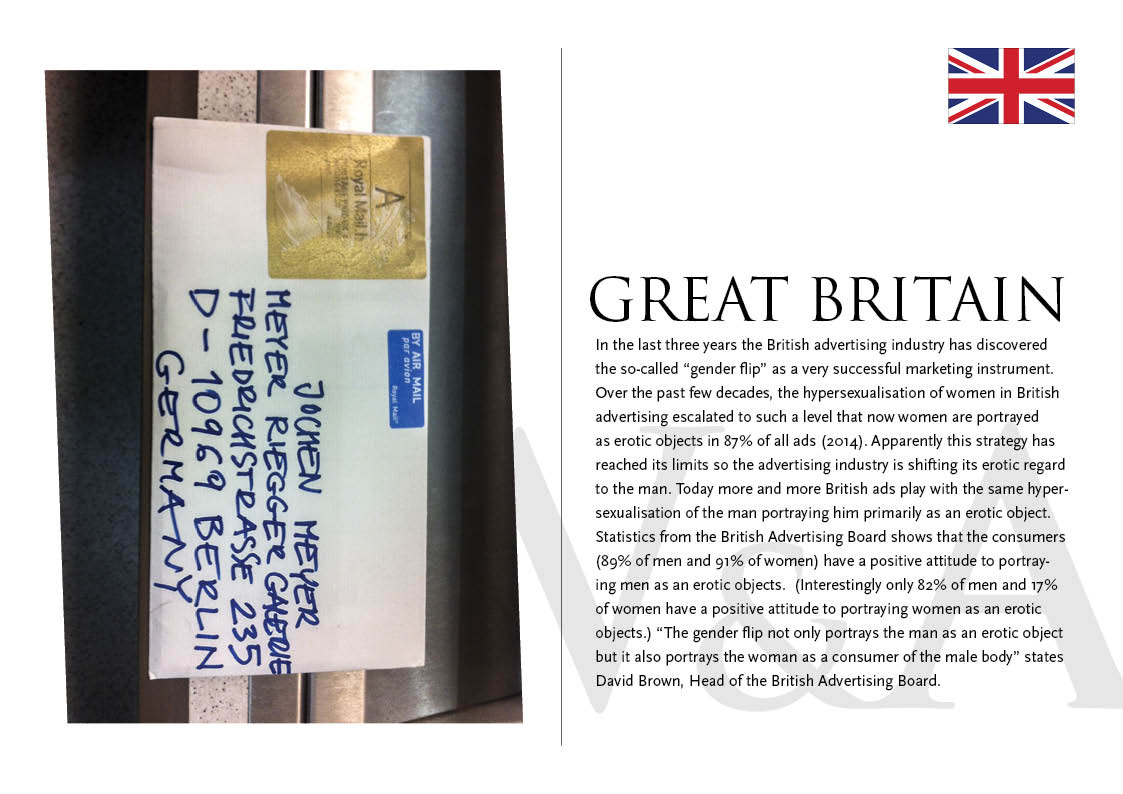 A
Royal Mail
BY AIR MAIL
par avion
Royal Mail
JOCHEN MEYER
MEYER RIEGGER GALERIE
FRIEDRICHSTRASSE 235
D-10969 BERLIN
GERMANY
GREAT BRITAIN
In the last three years the British advertising industry has discovered
the so-called “gender flip” as a very successful marketing instrument.
Over the past few decades, the hypersexualisation of women in British
advertising escalated to such a level that now women are portrayed
as erotic objects in 87% of all ads (2014). Apparently this strategy has
reached its limits so the advertising industry is shifting its erotic regard
to the man. Today more and more British ads play with the same hyper-
sexualisation of the man portraying him primarily as an erotic object.
Statistics from the British Advertising Board shows that the consumers
(89% of men and 91% of women) have a positive attitude to portray-
ing men as an erotic objects.  (Interestingly only 82% of men and 17%
of women have a positive attitude to portraying women as an erotic
objects.) “The gender flip not only portrays the man as an erotic object
but it also portrays the woman as a consumer of the male body” states
David Brown, Head of the British Advertising Board.
&A